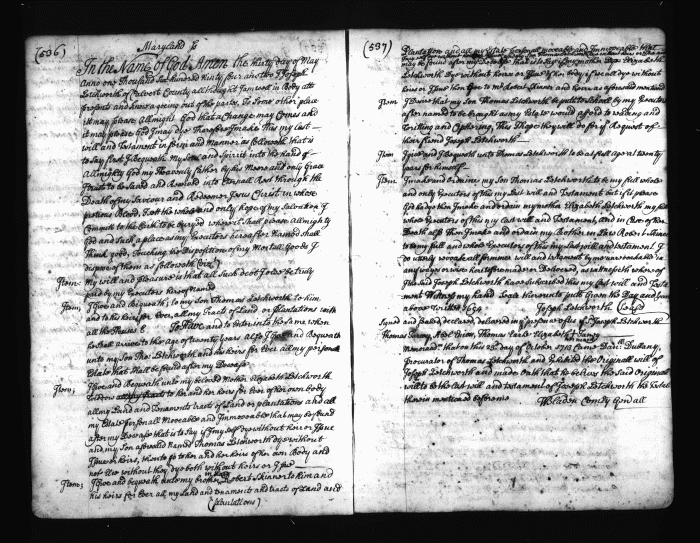 (536)
Maryland ss
In the Name of God Amen the thirty day of May
Anno one Thousand Six hundred ninty four and too I Joseph
Letchworth of Calvert County all though I am well in Body att
present and knowing going out of this place To Some other place
it may please Allmighty God that a Change may Come and
it may please God I may dye Therefore I make This my last
will and Testament in form and Manner as followeth that is
to say first I Bequeath My Soul and Spirit into the hand of
Allmighty God my Heavenly father by his Mercy and only Grace
Trust to be Saved and Received into Eternall Rest through the
Death of my Saviour and Redeemer Jesus Christ in whose
pretious Blood I sett the whole and only hope of my Salvation I
Committ to the Earth to be buryed where it Shall please Allmighty
God and Such a place as my Executors hereafter Named shall
Think good, Touching the Disposition of my Mortall Goods I
dispose of them as followeth (viz)
Item: My will and pleasure is that all Such debt I owe be truly
paid by my Executors hereafter Named
Item; I Give and Bequeath to my Son Thomas Letchworth to him
and to his heires for Ever, all my Tract of Land or plantations with
all the Houses To Have and to Enter into the same when
he shall arrive to the age of twenty years also I Give and Bequeath
unto my Son Tho: Letchworth and his heires for Ever all my personall
Estate that Shall be found after my Decease
Item; I Give and Bequath unto my beloved Mother Elizabeth Letchworth
to her and her heires for Ever of her own Body
all my Land and Tenaments tracts of Land or plantations and all
my Estate personall Moveable and Immoveable that may be found
after my Decease that is to say if my Self dye without heir or Issue
and my Son aforesaid Named Thomas Letchworth dye without
Issue or heirs, then to go to her and her heires of her own Body and
not Else without they dye both without heirs or Issue
Item; I Give and Bequath unto my brother in Law Robert Skinner to him and
his heires for Ever all my Land and tenaments and tracts of Land and
(plantations)
(537)
Plantation and all my Estate personall moveable and Immoveable that
be found after my Decease that is to say if my mother Dame Elizabeth
Letchworth Dye without heires or Issue of her body if she all dye without
heirs or Issue then Goes to Mr Robert Skinner and heires as aforesaid mentioned
Item I Desire that my Son Thomas Letchworth be putt to School by my Executors
after named to be brought as my Estate would afford to reading and
writing and Cyphering, This I hope they will do for the Request of
their friend Joseph Letchworth
Item I give and Bequeath unto Thomas Letchworth to be att full age att twenty
years for himself
Item I make and ordain my Son Thomas Letchworth to be my full whole
and only Executor of this my last will and Testament but if it please
God he dye then I make and ordain my mother Elizabeth Letchworth my full
whole Executor of this my last will and Testament, and in Case of her
Death also then I make and ordain my Brother in Law Robert Skinner
to be my full and whole Executor of this my Last will and testament. I
do utterly revoke all former will and testament by me
any ways or wise heretofore made or Declared, as witnesseth whereof
I the said Joseph Letchworth have subscribed this my Last will and Testa-
ment Witness my hand Seale thereunto putt Given the Day and year
above written 1694 Joseph Letchworth (Seale)
Signed and Sealed, declared, delivered in presence of us of Joseph Letchworth
Thomas Tanny, Robert Gover, Thomas Earle Elizabeth Tanny
Memorand: that on this 22d day of October 1695 Came Dan: Dullany,
Procurator of Thomas Letchworth and Exhibited the Originall will of
Joseph Letchworth and made Oath that he believes the said Originall
will to be the last will and testament of Joseph Letchworth the Testat
therein mentioned before me
W: Bladen Comry Genall